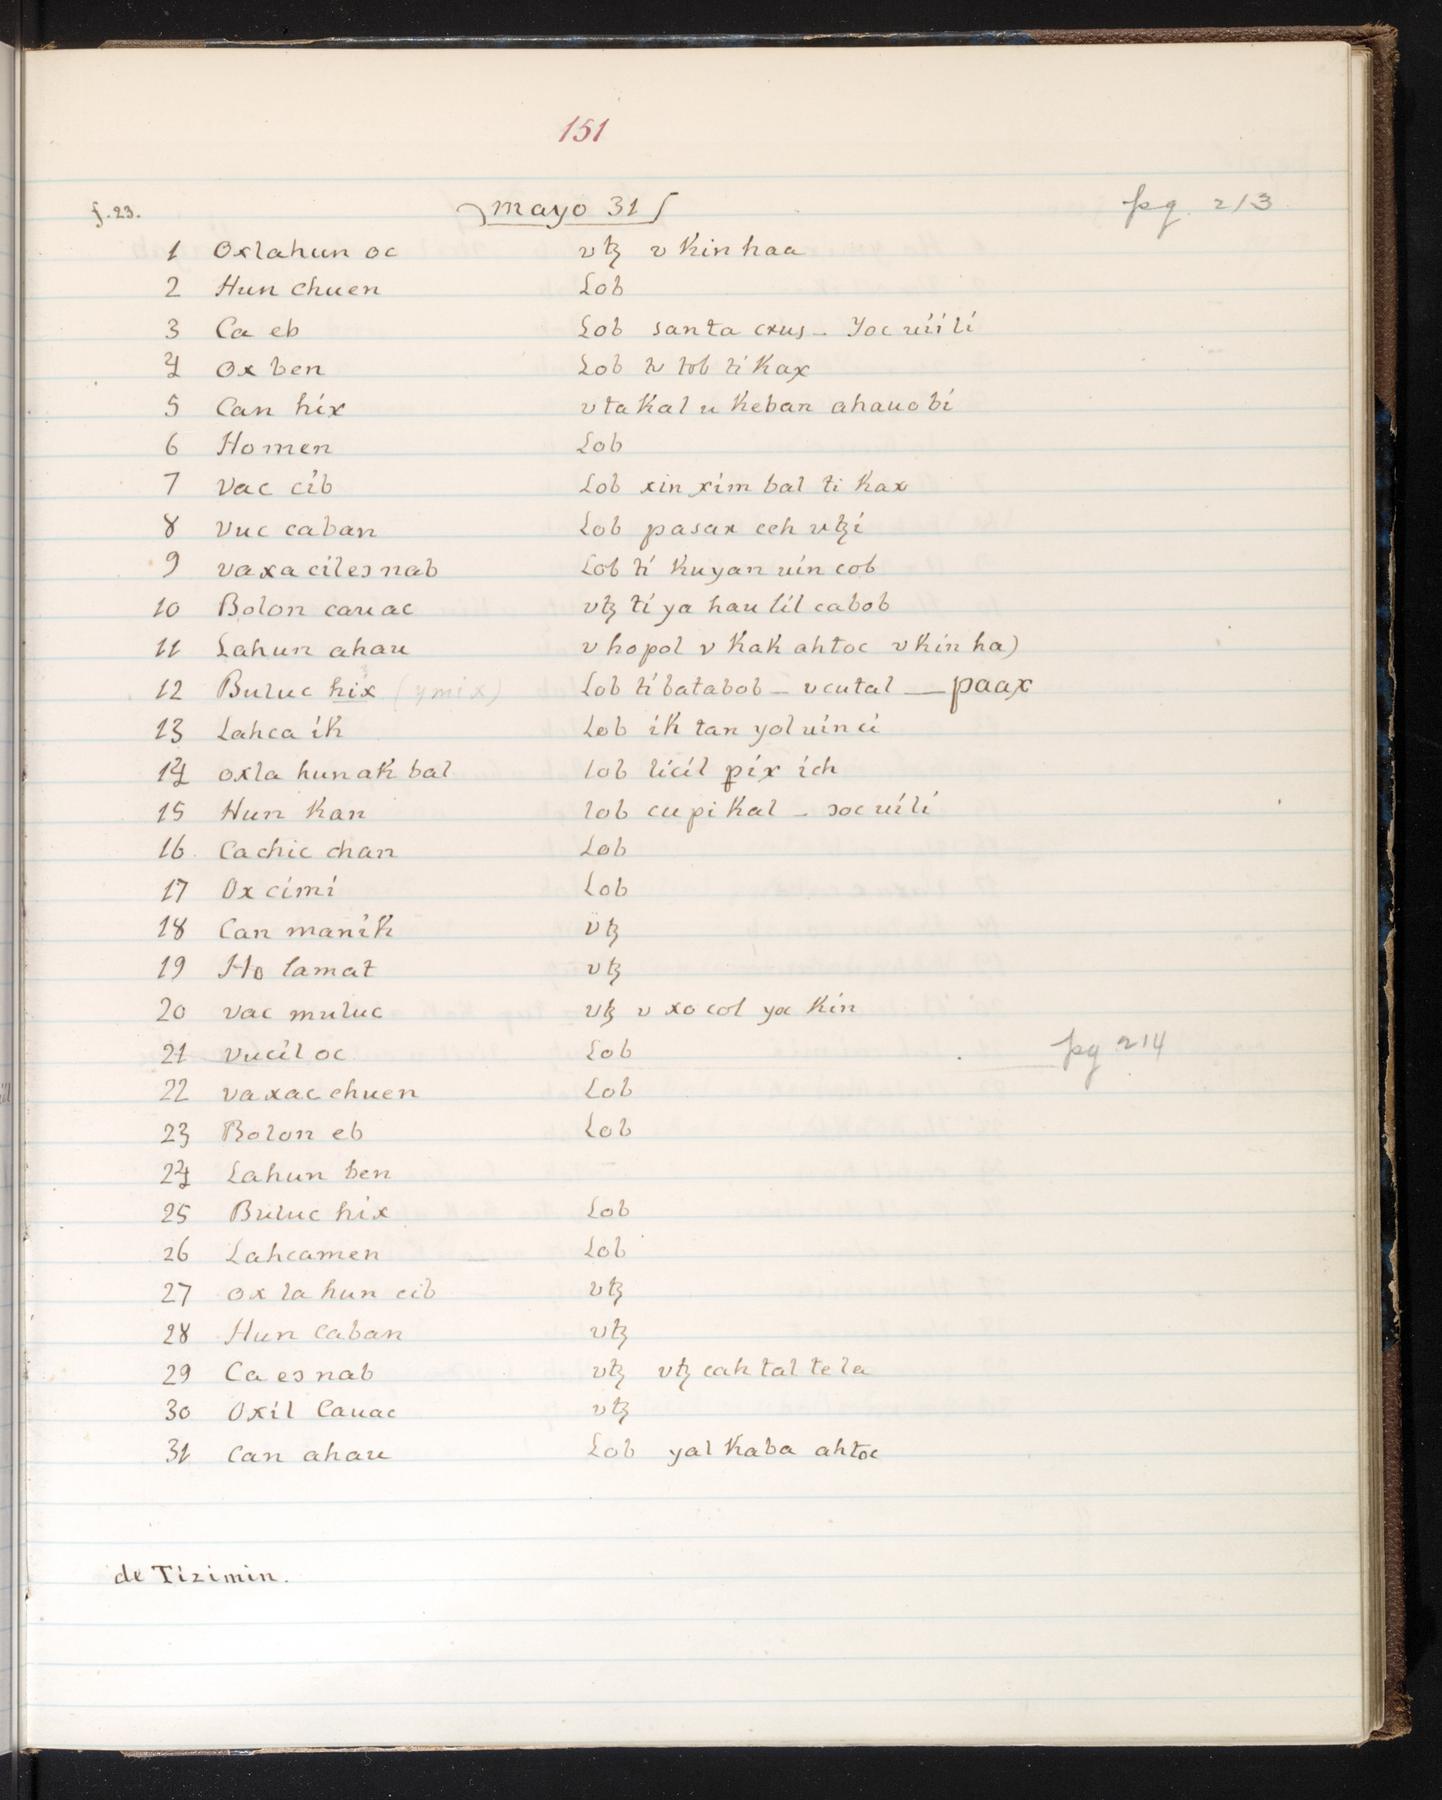 151
f. 23. mayo 31 pg 213
1 Oxlahun oc vꜩ v Kin haa
2 Hun chuen Lob
3 Ca eb Lob santa crus - Yoc uiili
4 Ox ben Lob tu tob ti Kax
5 Can hix v ta Kal u Keban ahauobi
6 Ho men Lob
7 Vac cib Lob xin xim bal ti Kax
8 Vuc caban Lob pasax ceh uꜩi
9 vaxa cil es nab Lob ti Kuyan uin cob
10 Bolon cauac vꜩ ti ya hau lil cabob
11 Lahun ahau v hopol v Kak ahtoc v kin ha)
12 Buluc hix (ymix) Lob ti batabob - v cutal — paax
13 Lahca ik Lob ik tan yol uinci
14 oxla hun ak bal lob licil pix ich
15 Hun Kan lob cu pi Kal - soc uili
16 Ca chic chan Lob
17 Ox cimi Lob
18 Can manik vꜩ
19 Ho lamat vꜩ
20 vac muluc vꜩ v xo col yoc Kin
21 vucil oc Lob pg 214
22 vaxac chuen Lob
23 Bolon eb Lob
24 Lahun ben
25 Buluc hix Lob
26 Lahcamen Lob
27 ox la hun cib vꜩ
28 Hun Caban vꜩ
29 Ca es nab vꜩ vꜩ cah tal te la
30 Oxil Cauac vꜩ
31 can ahau Lob yal Kaba ahtoc
de Tizimin.